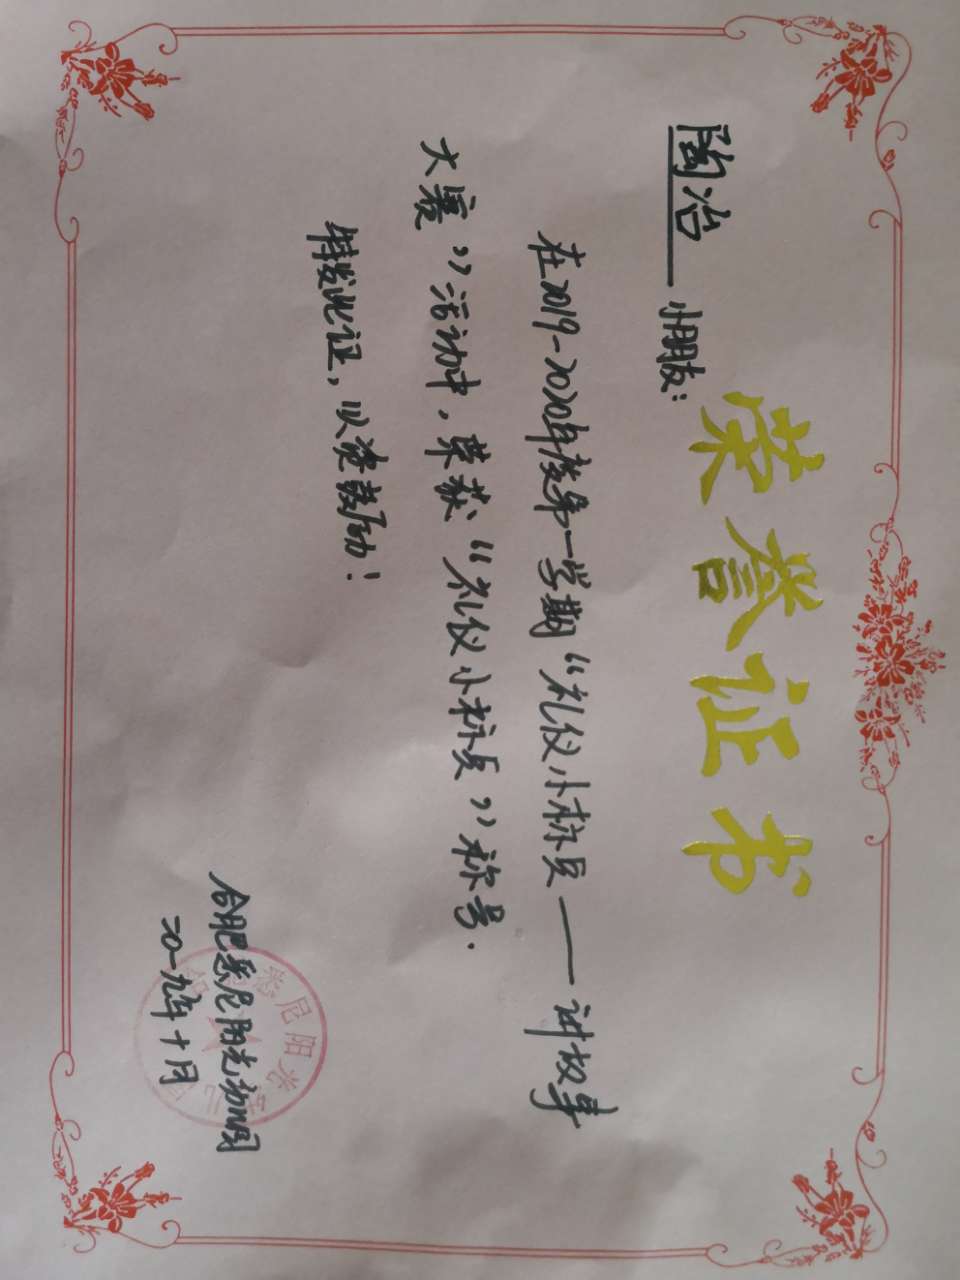 荣誉证书
陶冶 小朋友:
在2019-2020年度第一学期“礼仪小标兵——讲故事
大赛”活动中,荣获“礼仪小标兵”称号.
特发此证,以资鼓励!
合肥悉尼阳光幼儿园
二〇一九年十月
悉尼阳光